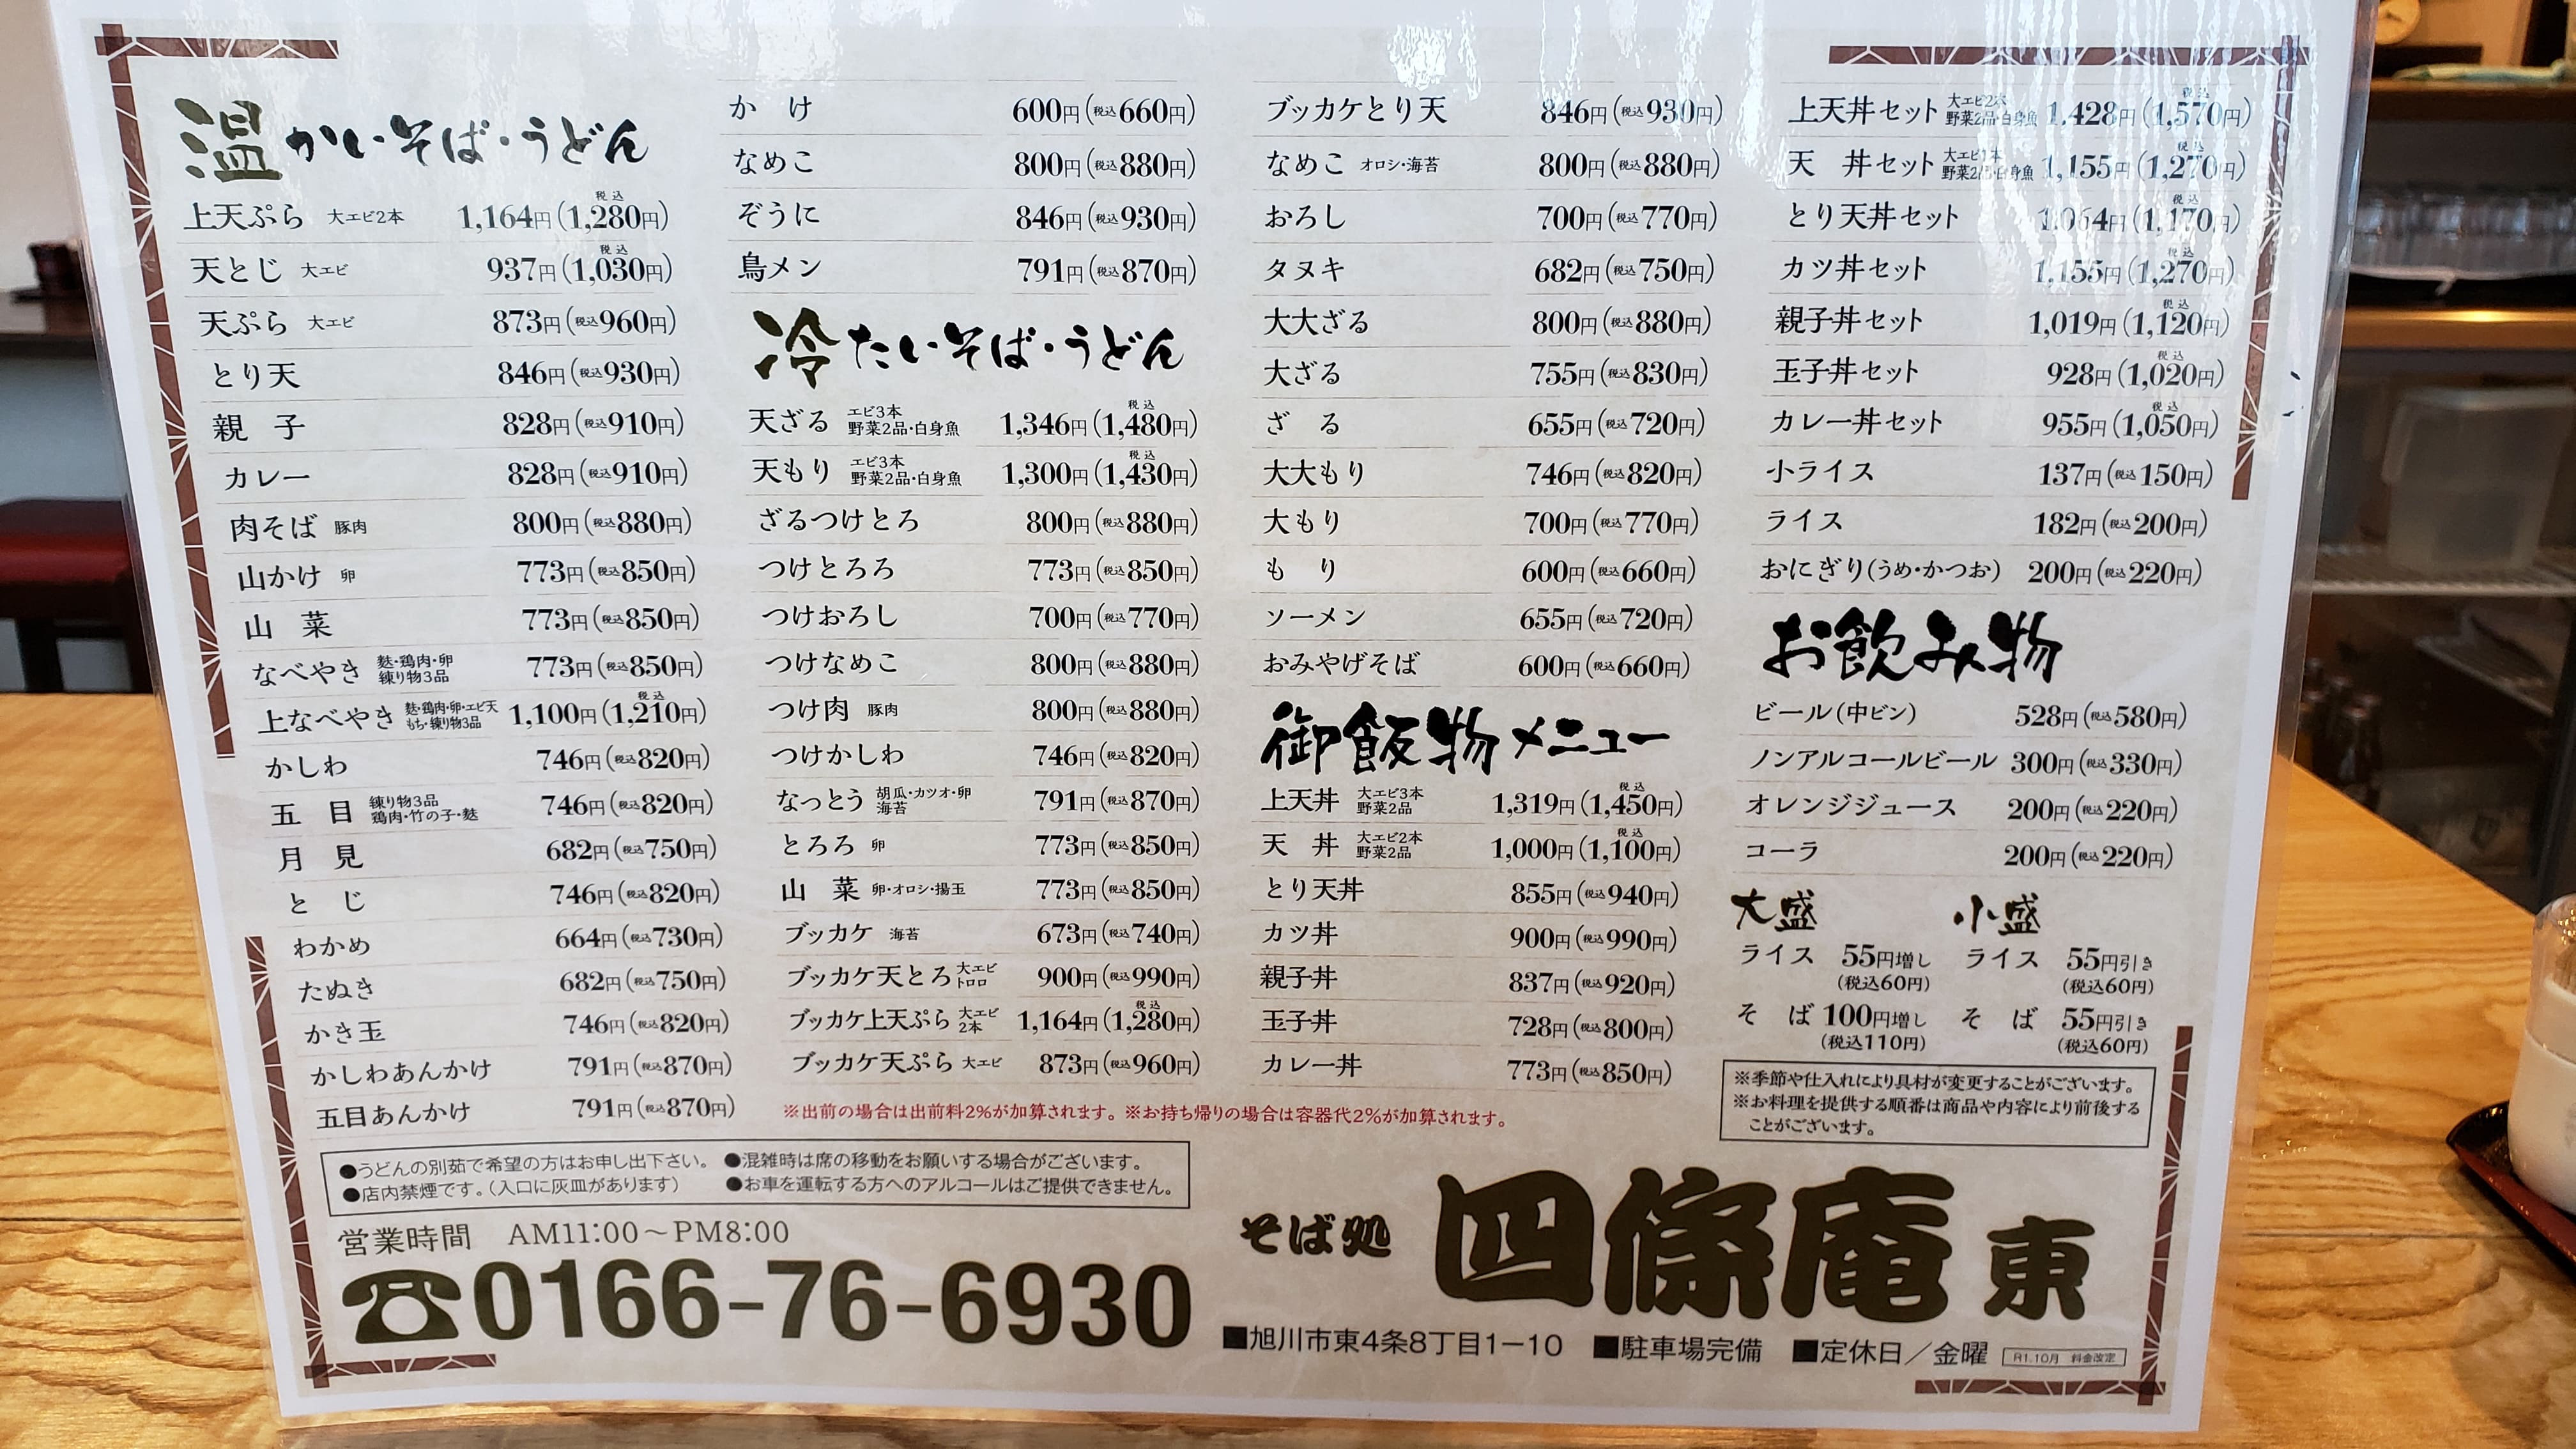 温かいそば・うどん
上天ぷら 大エビ2本 1,164円(税込1,280円)
天とじ 大エビ 937円(税込1,030円)
天ぷら 大エビ 873円(税込960円)
とり天 846円(税込930円)
親 子 828円(税込910円)
カレー 828円(税込910円)
肉そば 豚肉 800円(税込880円)
山かけ 卵 773円(税込850円)
山 菜 773円(税込850円)
なべやき 麩・鶏肉・卵 練り物3品 773円(税込850円)
上なべやき 麩・鶏肉・卵・エビ天 もち・練り物3品 1,100円(税込1,210円)
かしわ 746円(税込820円)
五 目 練り物3品 鶏肉・竹の子・麩 746円(税込820円)
月 見 682円(税込750円)
と じ 746円(税込820円)
わかめ 664円(税込730円)
たぬき 682円(税込750円)
かき玉 746円(税込820円)
かしわあんかけ 791円(税込870円)
五目あんかけ 791円(税込870円)
か け 600円(税込660円)
なめこ 800円(税込880円)
ぞうに 846円(税込930円)
鳥メン 791円(税込870円)
冷たいそば・うどん
天ざる エビ3本 野菜2品・白身魚 1,346円(税込1,480円)
天もり エビ3本 野菜2品・白身魚 1,300円(税込1,430円)
ざるつけとろ 800円(税込880円)
つけとろろ 773円(税込850円)
つけおろし 700円(税込770円)
つけなめこ 800円(税込880円)
つけ肉 豚肉 800円(税込880円)
つけかしわ 746円(税込820円)
なっとう 胡瓜・カツオ・卵 海苔 791円(税込870円)
とろろ 卵 773円(税込850円)
山 菜 卵・オロシ・揚玉 773円(税込850円)
ブッカケ 海苔 673円(税込740円)
ブッカケ天とろ 大エビ トロロ 900円(税込990円)
ブッカケ上天ぷら 大エビ 2本 1,164円(税込1,280円)
ブッカケ天ぷら 大エビ 873円(税込960円)
ブッカケとり天 846円(税込930円)
なめこ オロシ・海苔 800円(税込880円)
おろし 700円(税込770円)
タヌキ 682円(税込750円)
大大ざる 800円(税込880円)
大ざる 755円(税込830円)
ざ る 655円(税込720円)
大大もり 746円(税込820円)
大もり 700円(税込770円)
も り 600円(税込660円)
ソーメン 655円(税込720円)
おみやげそば 600円(税込660円)
御飯物メニュー
上天丼 大エビ3本 野菜2品 1,319円(税込1,450円)
天 丼 大エビ2本 野菜2品 1,000円(税込1,100円)
とり天丼 855円(税込940円)
カツ丼 900円(税込990円)
親子丼 837円(税込920円)
玉子丼 728円(税込800円)
カレー丼 773円(税込850円)
上天丼セット 大エビ2本 野菜2品・白身魚 1,428円(税込1,570円)
天 丼セット 大エビ1本 野菜2品・白身魚 1,155円(税込1,270円)
とり天丼セット 1,064円(税込1,170円)
カツ丼セット 1,155円(税込1,270円)
親子丼セット 1,019円(税込1,120円)
玉子丼セット 928円(税込1,020円)
カレー丼セット 955円(税込1,050円)
小ライス 137円(税込150円)
ライス 182円(税込200円)
おにぎり(うめ・かつお) 200円(税込220円)
お飲み物
ビール(中ビン) 528円(税込580円)
ノンアルコールビール 300円(税込330円)
オレンジジュース 200円(税込220円)
コーラ 200円(税込220円)
大盛 小盛
ライス 55円増し ライス 55円引き
(税込60円) (税込60円)
そ ば 100円増し そ ば 55円引き
(税込110円) (税込60円)
※季節や仕入れにより具材が変更することがございます。
※お料理を提供する順番は商品や内容により前後する
ことがございます。
※出前の場合は出前料2%が加算されます。※お持ち帰りの場合は容器代2%が加算されます。
●うどんの別茹で希望の方はお申し出下さい。 ●混雑時は席の移動をお願いする場合がございます。
●店内禁煙です。(入口に灰皿があります) ●お車を運転する方へのアルコールはご提供できません。
営業時間 AM11:00～PM8:00
☎0166-76-6930
そば処 四條庵 東
■旭川市東4条8丁目1－10 ■駐車場完備 ■定休日／金曜 R1.10月 料金改定